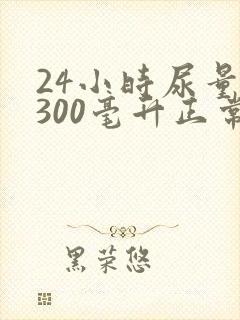 24小时尿量
300毫升正常
黑荣悠